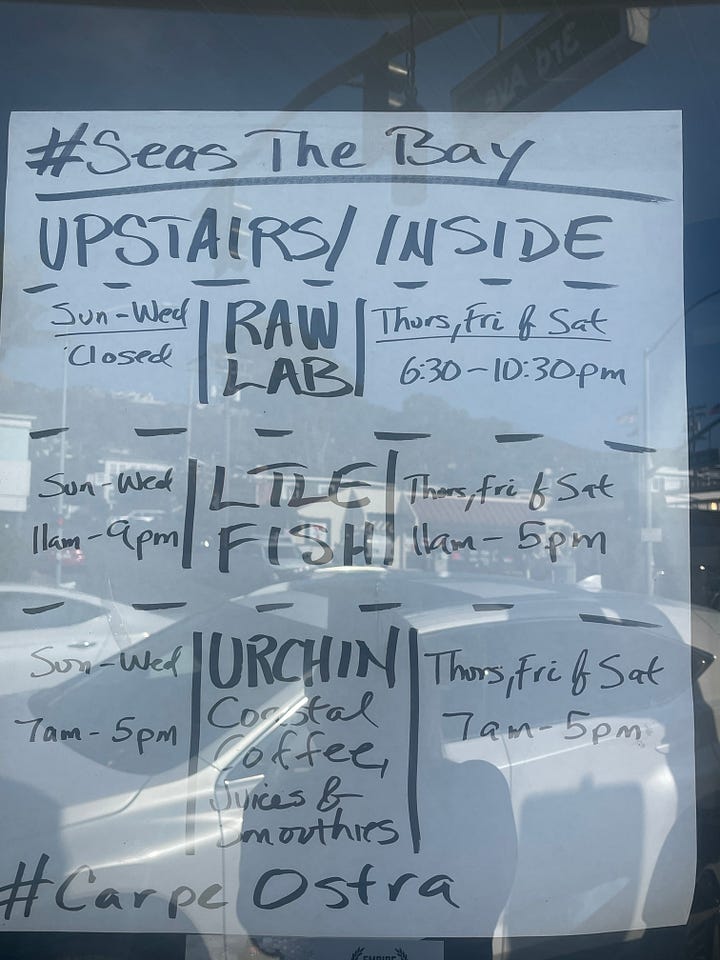 3rd Ave
#Seas The Bay
UPSTAIRS/INSIDE
Sun-Wed
Closed
RAW
LAB
Thurs, Fri & Sat
6:30-10:30pm
Sun-Wed
11am-9pm
LTLE
FISH
Thurs, Fri & Sat
11am-5pm
Sun-Wed
7am-5pm
URCHIN
Coastal
Coffee,
Juices &
Smoothies
Thurs, Fri & Sat
7am-5pm
#Carpe Ostra
EMPIRE